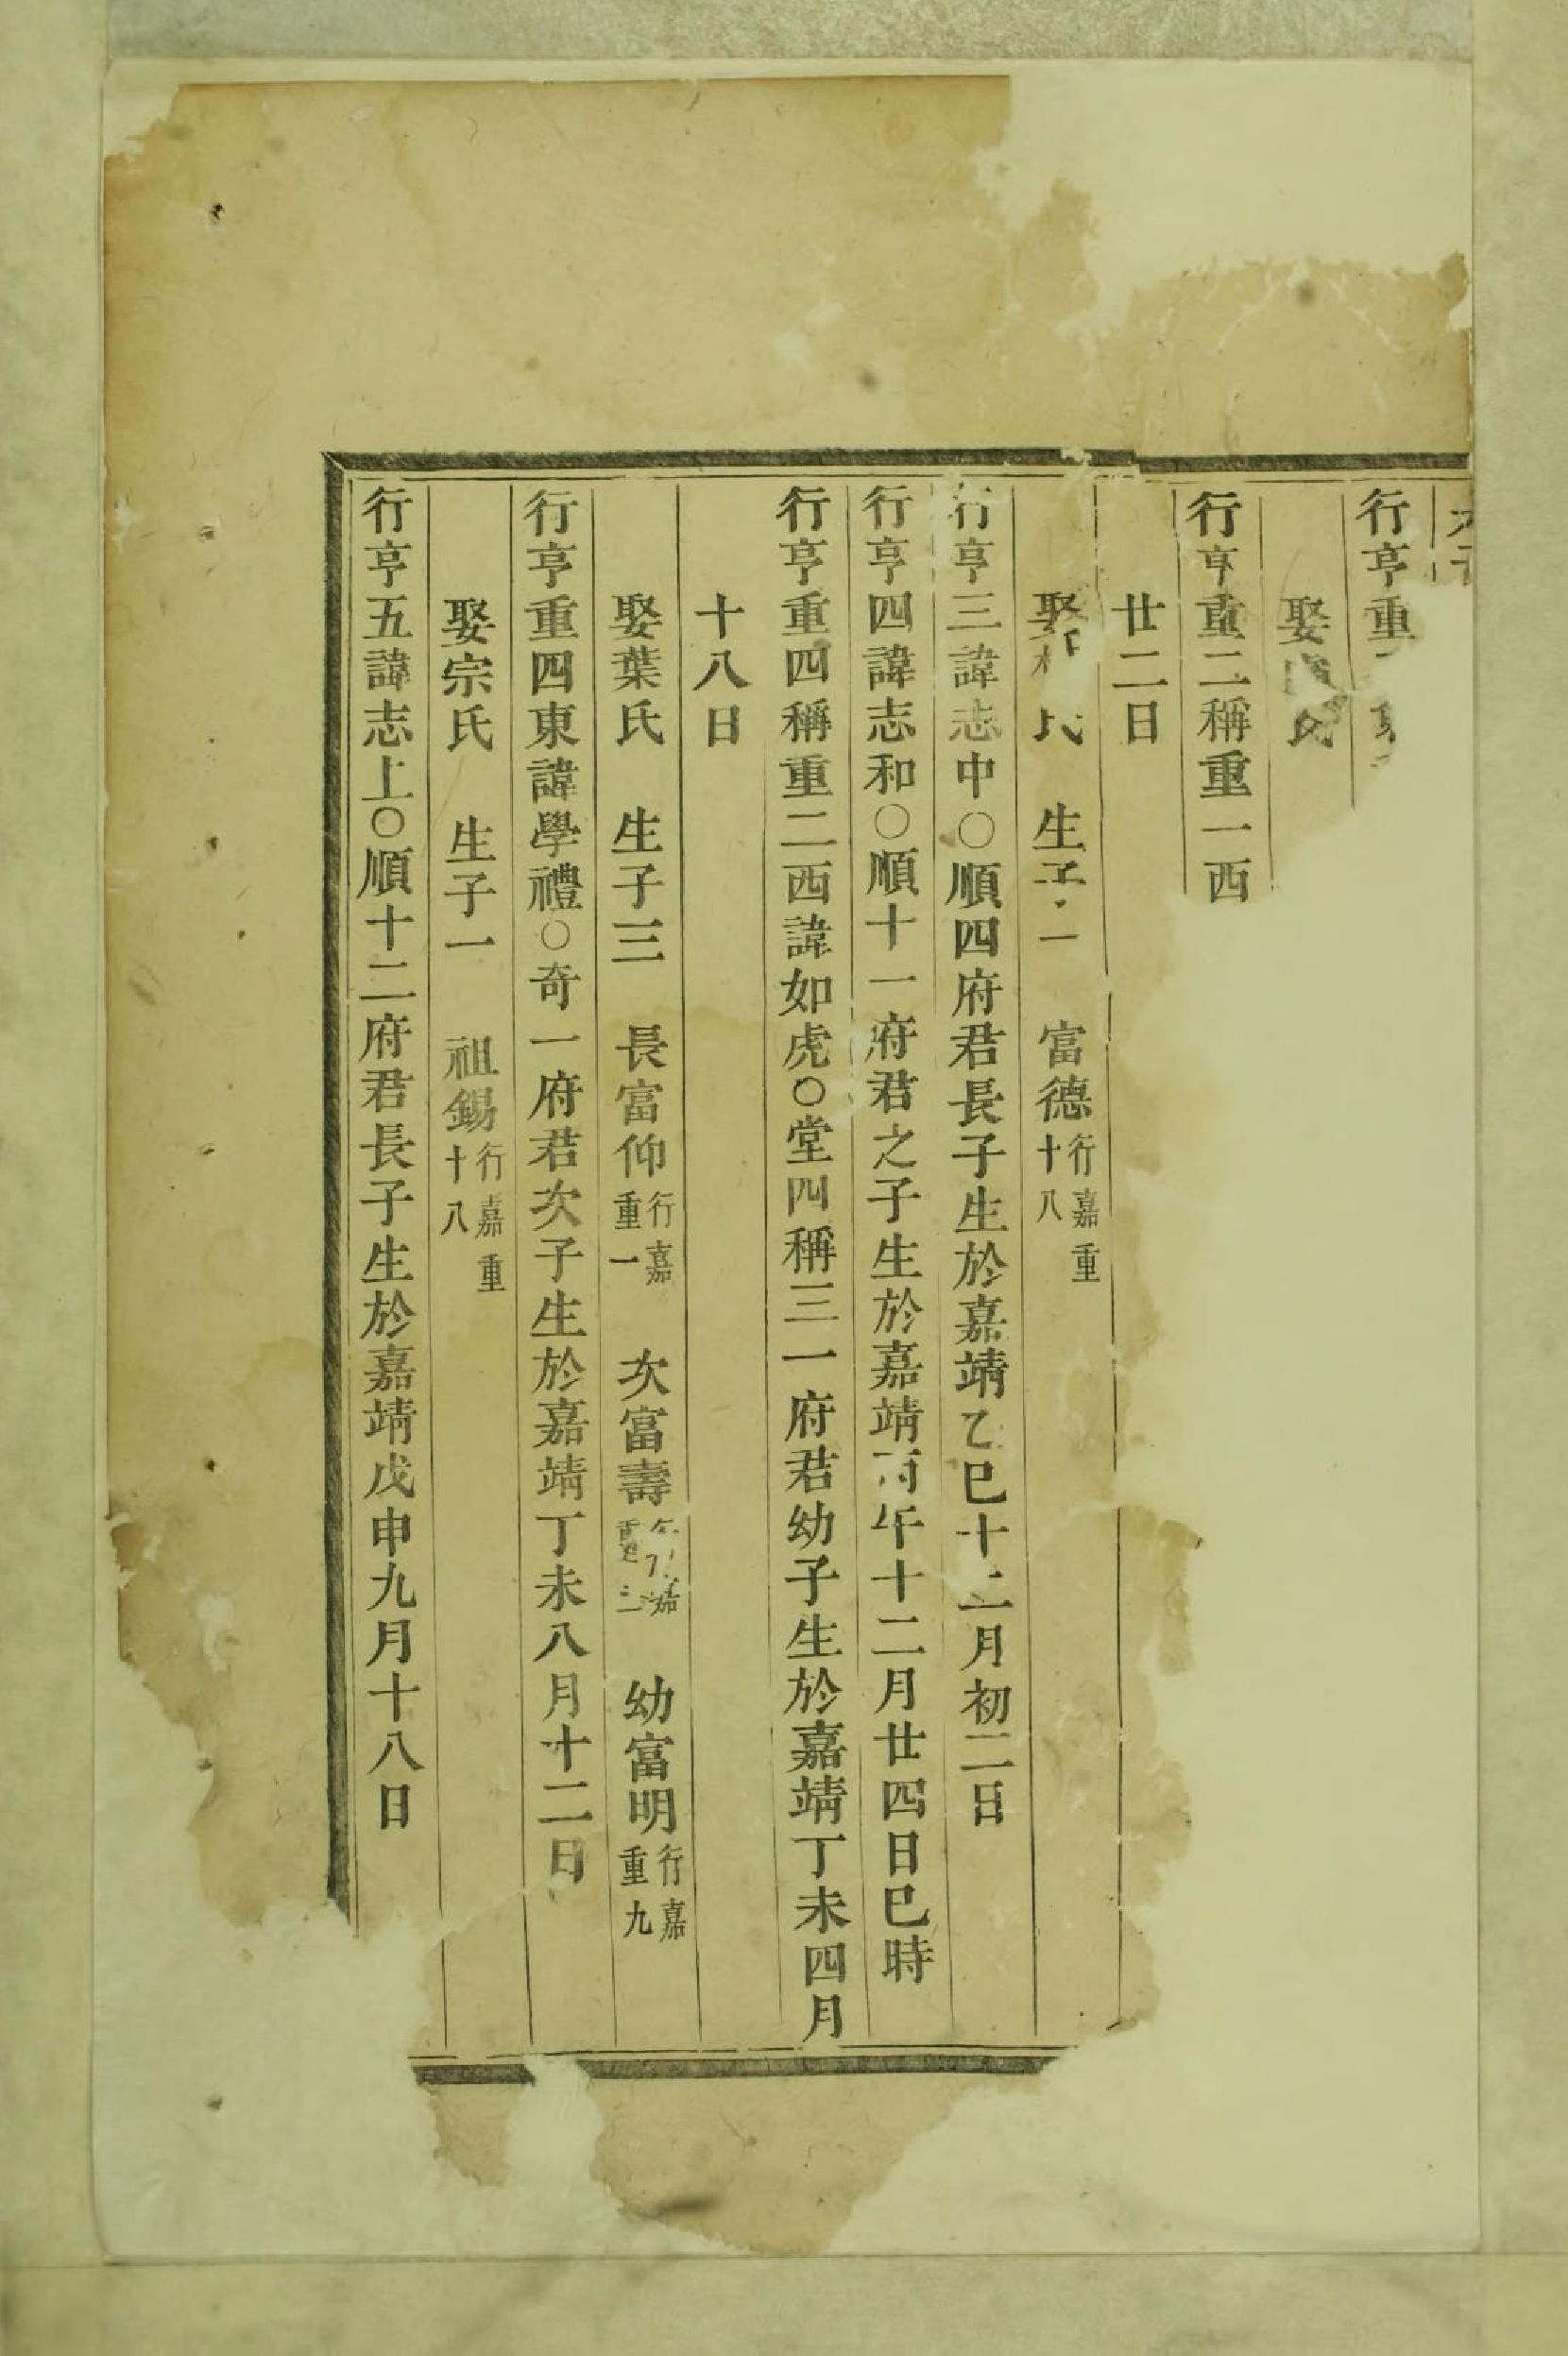 行亨重
娶氏
行亨重二稱重一西
廿二日
娶氏　生子一　富德行嘉重十八
行亨三諱志中○順四府君長子生於嘉靖乙巳十二月初二日
行亨四諱志和○順十一府君之子生於嘉靖丙午十二月廿四日巳時
行亨重四稱重二西諱如虎○堂四稱三一府君幼子生於嘉靖丁未四月
十八日
娶葉氏　生子三　長富仰行嘉重一　次富壽行嘉重　幼富明行嘉重九
行亨重四東諱學禮○奇一府君次子生於嘉靖丁未八月十二日
娶宗氏　生子一　祖錫行嘉重十八
行亨五諱志上○順十二府君長子生於嘉靖戊申九月十八日